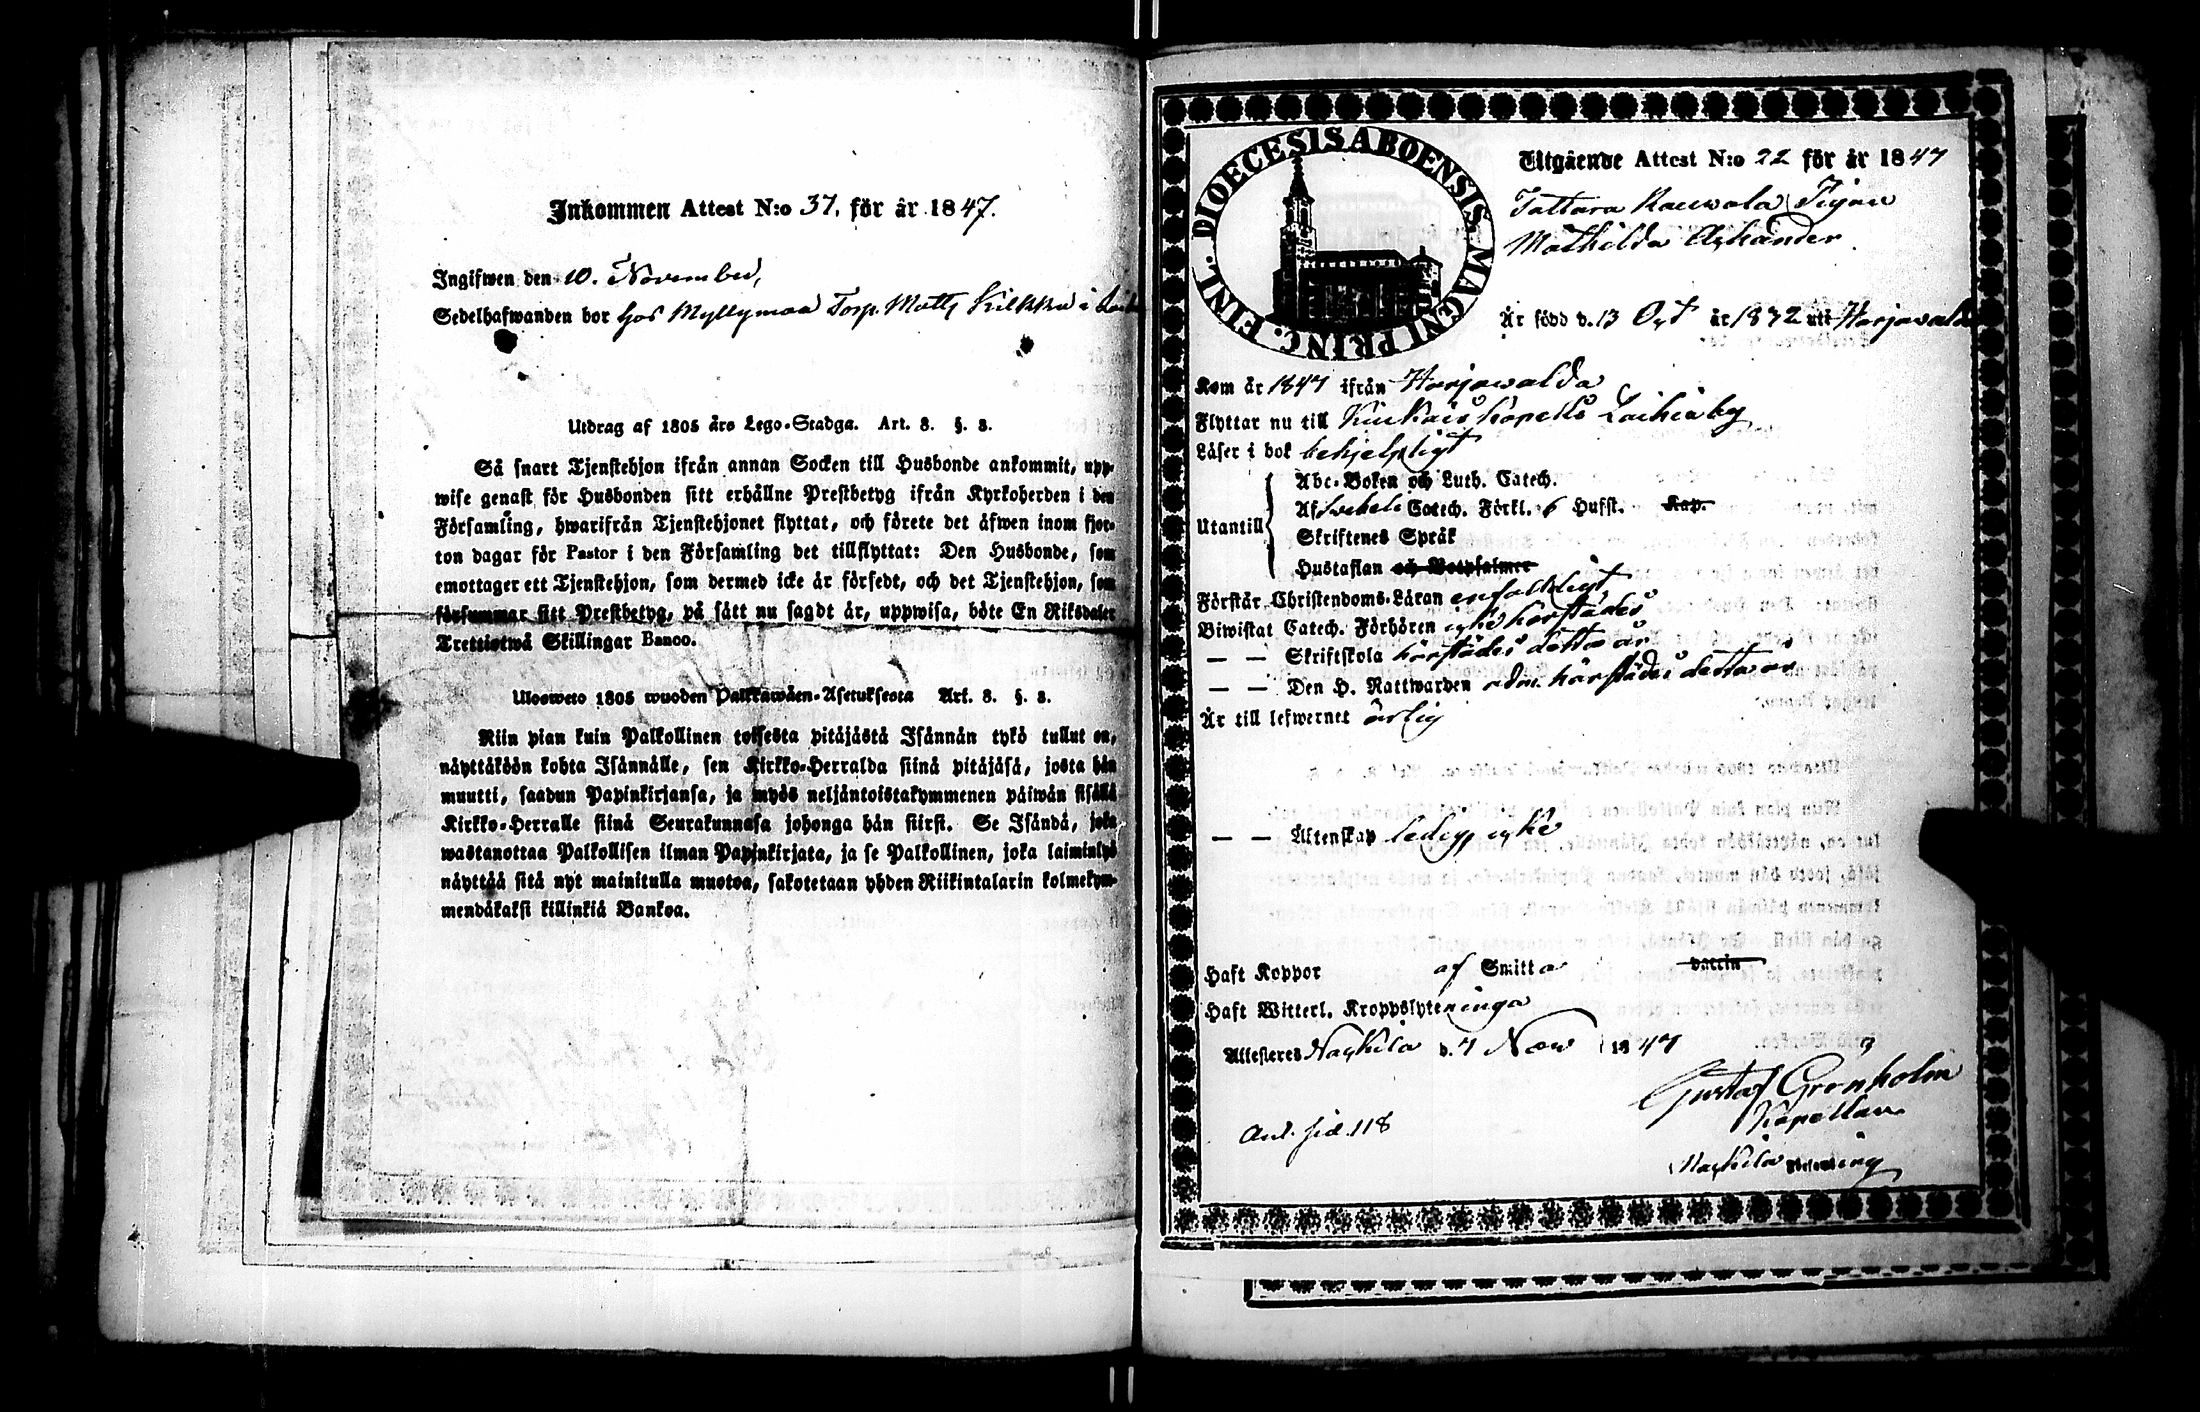 Inkommen Attest N:o 37. för år 1847.
Ingifwen den 10. November,
Sedelhafwanden bor hos Myllymaa Torp. Matts Kilkku i
Utdrag af 1805 års Lego-Stadga. Art. 8. §. 3.
Så snart Tjenstehjon ifrån annan Socken till Husbonde ankommit, upp-
wise genast för Husbonden sitt erhållne Prestbetyg ifrån Kyrkoherden i den
Församling, hwarifrån Tjenstehjonet flyttat, och förete det äfwen inom fjor-
ton dagar för Pastor i den Församling det tillflyttat: Den Husbonde, som
emottager ett Tjenstehjon, som dermed icke är försedt, och det Tjenstehjon, som
försummar sitt Prestbetyg, på sätt nu sagdt är, uppwisa, böte En Riksdaler
Trettiotwå Skillingar Banco.
Ulosweto 1805 wuoden Palkkawäen-Asetuksesta Art. 8. §. 3.
Niin pian kuin Palkollinen toisesta pitäjästä Isännän tykö tullut on,
näyttäköön kohta Isännälle, sen Kirkko-Herralda siinä pitäjäsä, josta hän
muutti, saadun Papinkirjansa, ja myös neljäntoistakymmenen päiwän sisällä
Kirkko-Herralle siinä Seurakunnasa johonga hän siirsi. Se Isändä, joka
wastanottaa Palkollisen ilman Papinkirjata, ja se Palkollinen, joka laiminlyö
näyttää sitä nyt mainitulla muotoa, sakotetaan yhden Riikintalarin kolmekym-
mendäkaksi killinkiä Bankoa.
DIOECESIS ABOENSIS MAGNI PRINC. FINL.
Utgående Attest N:o 22 för år 1847
Tattara Kauwola Pigan
Mathilda
Är född d. 13 Oct år 1832 uti Harjawalda
Kom år 1847 ifrån Harjawalda
Flyttar nu till Kiukais Kapells Laihia by
Läser i bok behjelpligt
Abc-Boken och Luth. Catech.
Utantill Af Svebeli Catech. Förkl. 6 Hufst. Kap.
Skriftenes Språk
Hustaflan och Botpsalmer
Förstår Christendoms-Läran enfaldigt
Biwistat Catech. Förhören icke härstädes
— — Skriftskola härstädes detta år
— — Den H. Nattwarden adm. härstädes detta år
Är till lefwernet ärlig
— — Äktenskap ledig
Haft Koppor af Smitta vaccin
Haft Witterl. Kroppslyten inga
Attesteres Nackila d. 7 Nov 1847
Gustaf Grönholm
Kapellan
Anl. sid. 118
Nackila Församling